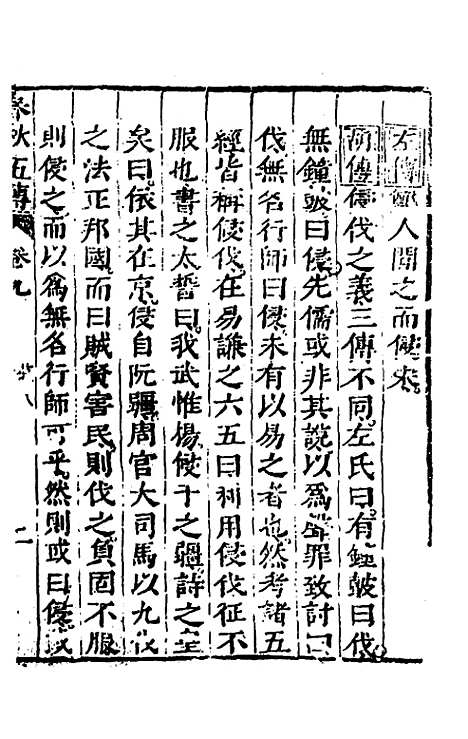 左傳鄭人聞之而侵宋
胡傳侵伐之義三傳不同左氏曰有鍾皷曰伐
無鐘皷曰侵先儒或非其説以為聲罪致討曰
伐無名行師曰侵未有以易之者也然考諸五
經皆稱侵伐在易謙之六五曰利用侵伐征不
服也書之太誓曰我武惟揚侵于之疆詩之皇
矣曰依其在京侵自阮疆周官大司馬以九伐
之法正邦國而曰賊賢害民則伐之負固不服
則侵之而以為無名行師可乎然則或曰侵或
春秋五傳 卷九 二